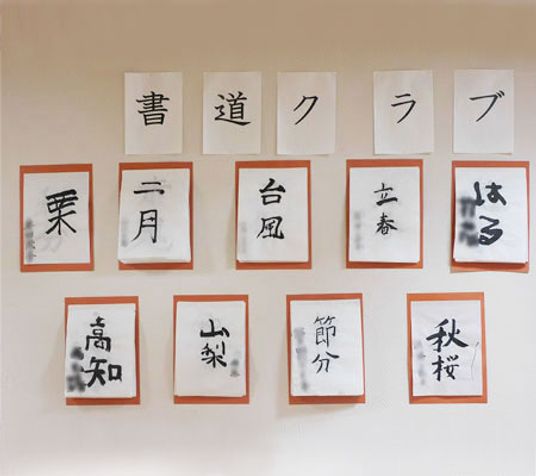 書道クラブ
栗
二月
台風
立春
はる
高知
山梨
節分
秋桜